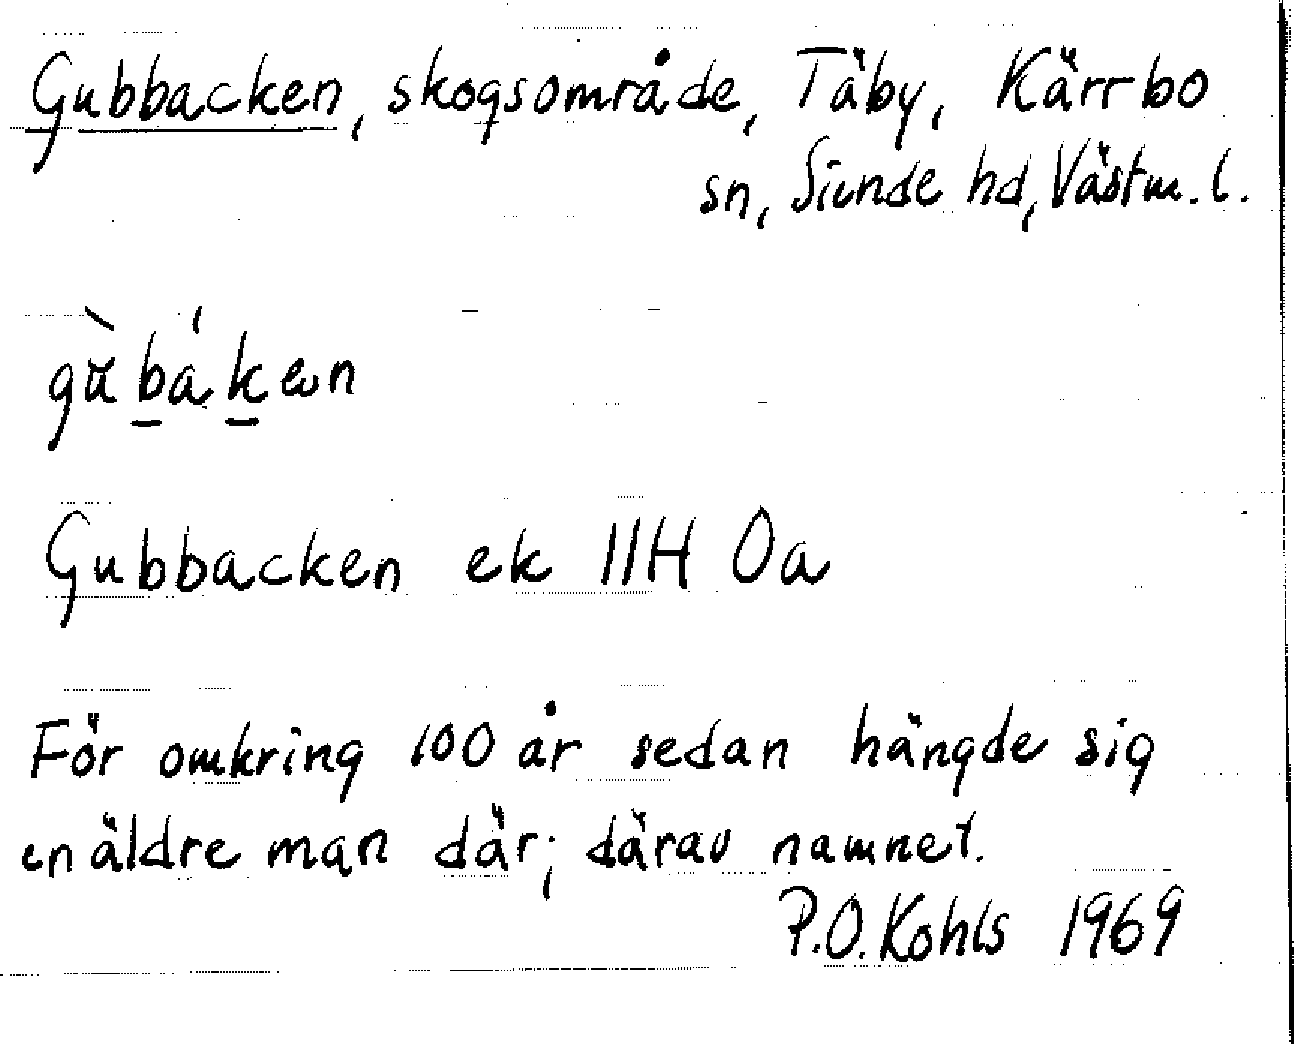 Gubbacken, skogsområde, Täby, Kärrbo
sn, Siende hd, Västm. l.
gùbákən
Gubbacken ek 11H 0a
För omkring 100 år sedan hängde sig
en äldre man där; därav namnet.
P.O. Kohls 1969